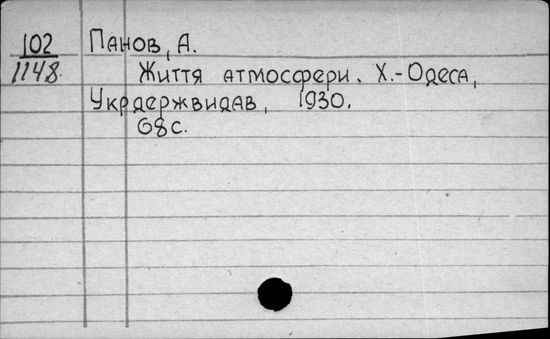 102
1148.
Панов, А.
Життя атмосфери. Х.-Одеса,
Укрдержвидав, 1930.
68с.